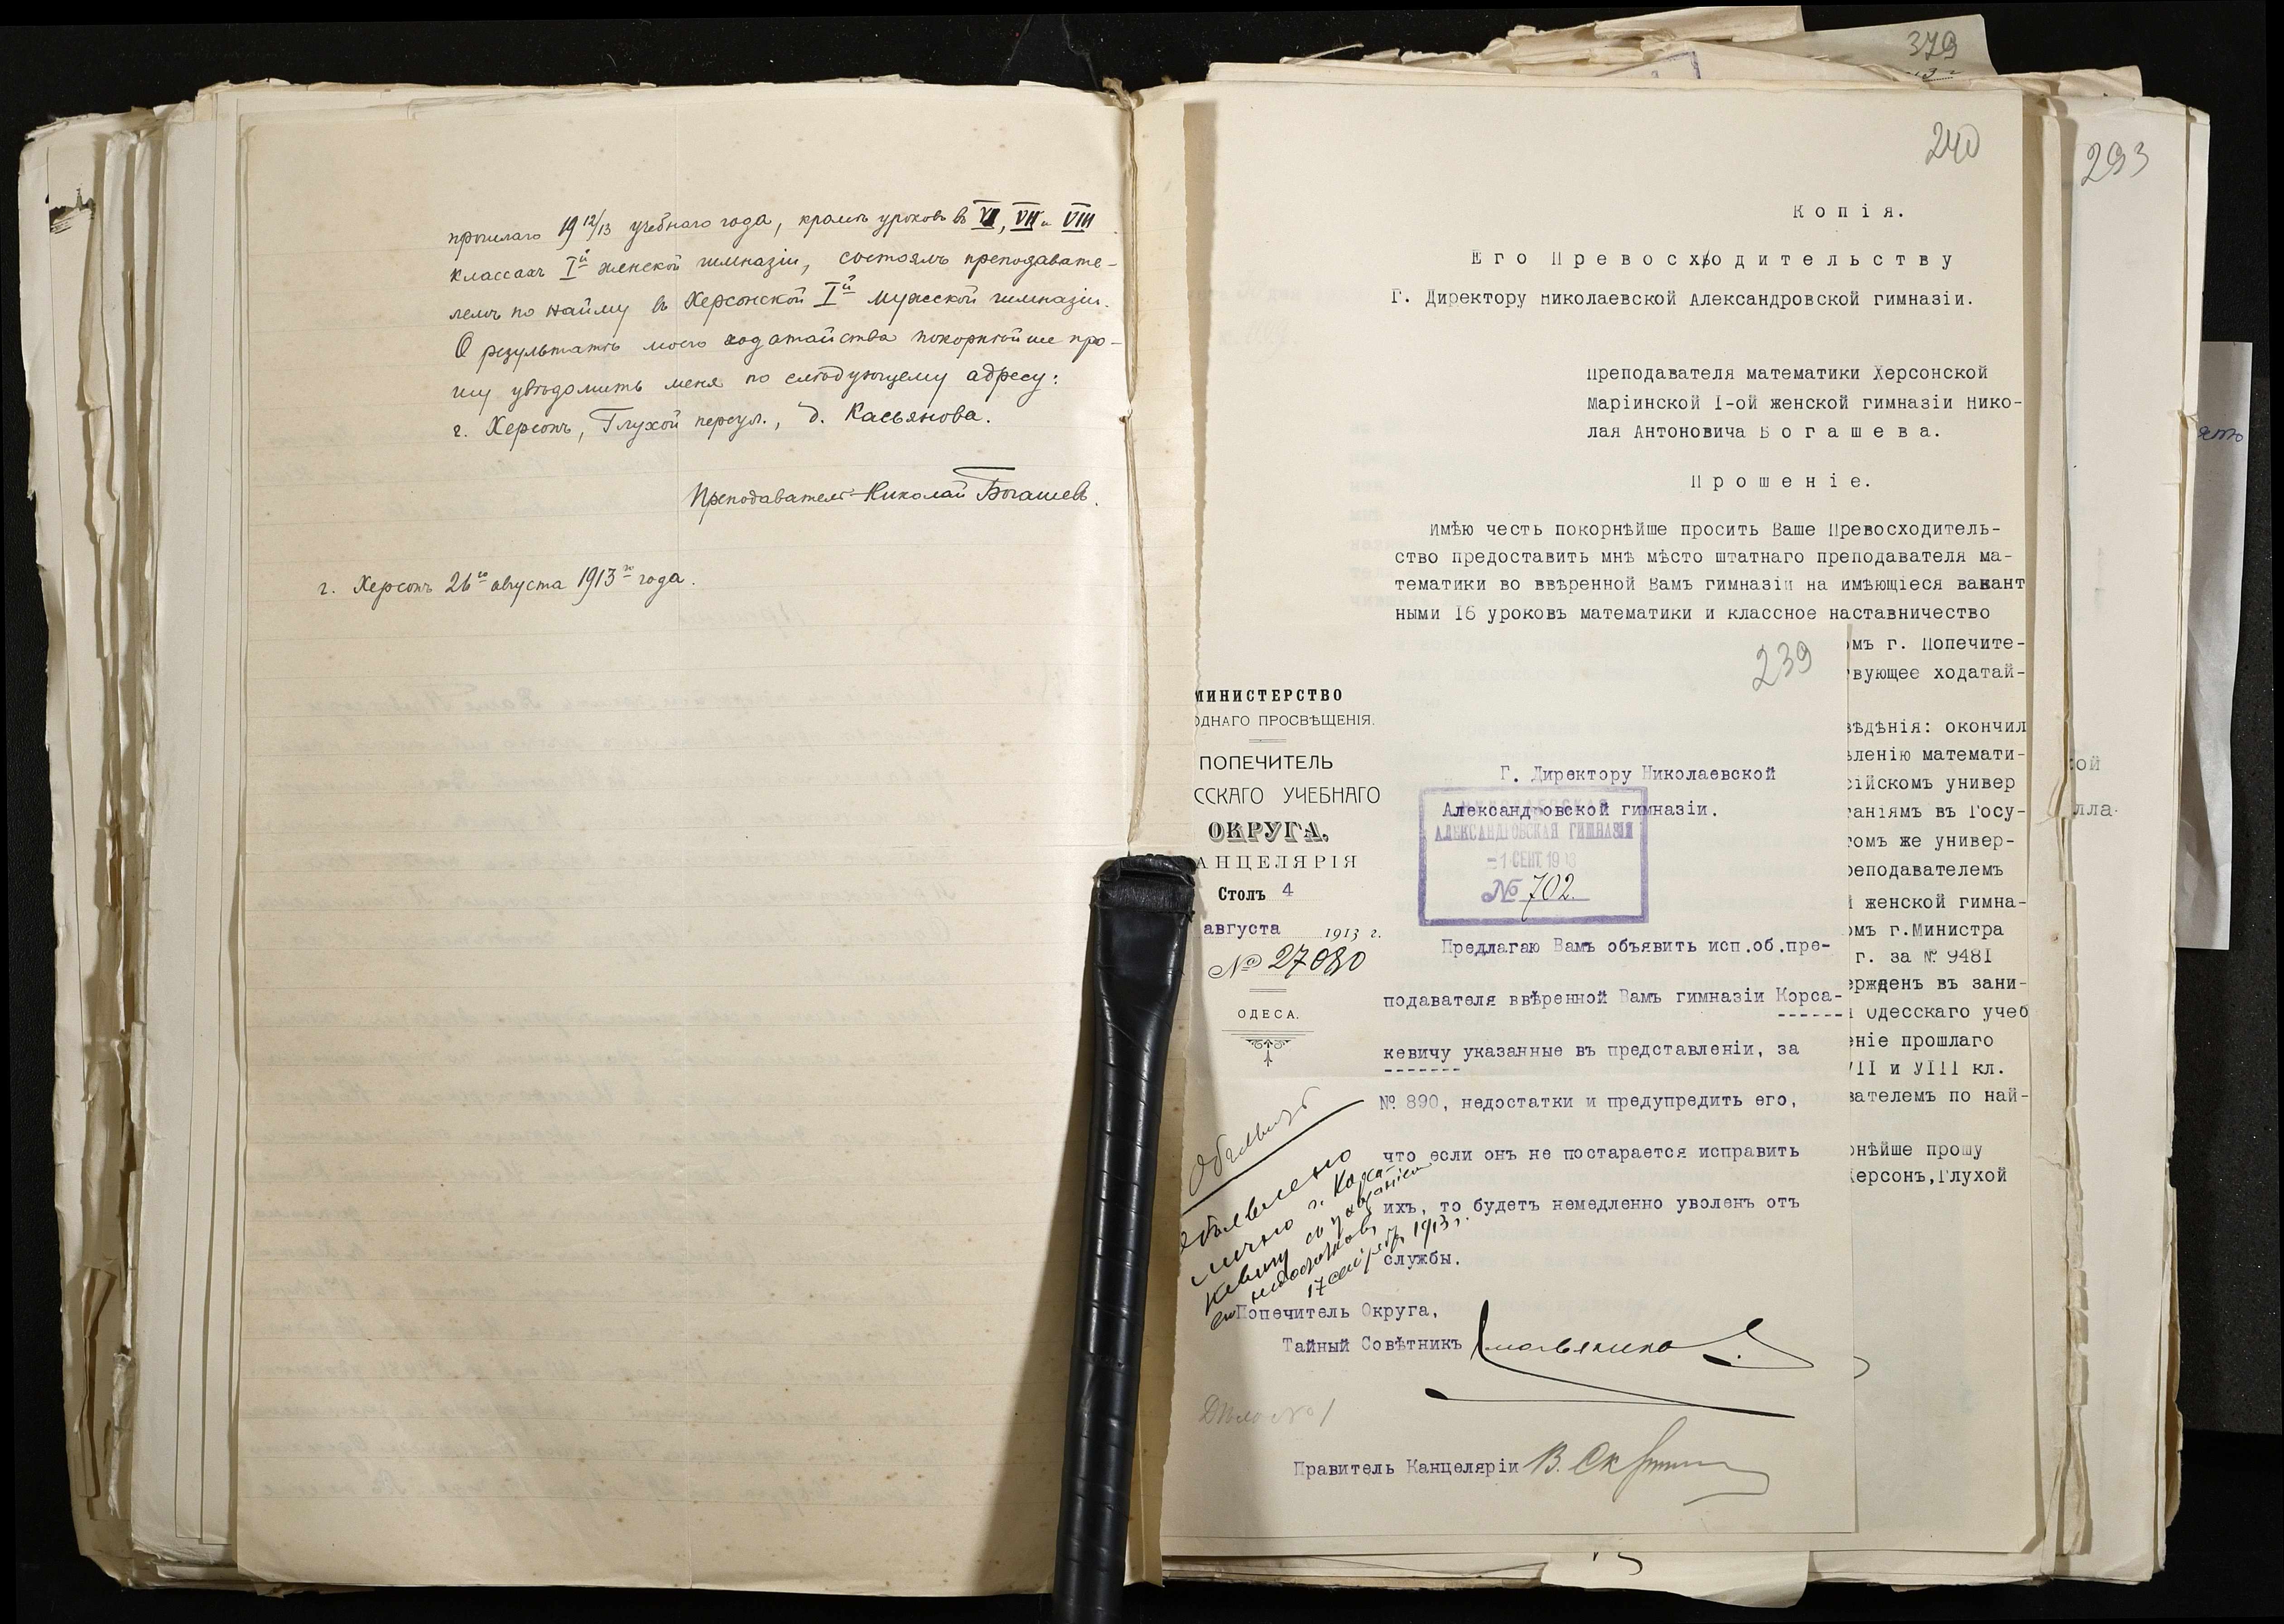 прошлаго 19 12/13 учебнаго года, кромѣ уроковъ въ VI, VII и VIII
классахъ Iй женской гимназіи, состоялъ преподавате-
лемъ по найму въ Херсонской Iй мужской гимназіи.
О результатѣ моего ходатайства покорнѣйше про-
шу увѣдомить меня по слѣдующему адресу:
г. Херсонъ, Глухой переул., д. Касьянова.
Преподаватель Николай Богашевъ.
г. Херсонъ 26го августа 1913го года.
379
240
293
Копія.
Его Превосходительству
Г. Директору Николаевской Александровской гимназіи.
Преподавателя математики Херсонской
Маріинской I-ой женской гимназіи Нико-
лая Антоновича Богашева.
Прошеніе.
Имѣю честь покорнѣйше просить Ваше Превосходитель-
ство предоставить мнѣ мѣсто штатнаго преподавателя ма-
тематики во ввѣренной Вамъ гимназіи на имѣющіеся вакант
ными 16 уроковъ математики и классное наставничество
омъ г. Попечите-
твующее ходатай-
вѣдѣнія: окончил
вленію математи-
сійскомъ универ
таніямъ въ Госу-
томъ же универ-
реподавателемъ
й женской гимна-
омъ г.Министра
г. за № 9481
ержденъ въ зани-
Одесскаго учеб
еніе прошлаго
VII и УIII кл.
вателемъ по най-
рнѣйше прошу
Херсонъ,Глухой
ой
лла-
239
МИНИСТЕРСТВО
ОДНАГО ПРОСВѢЩЕНІЯ.
ПОПЕЧИТЕЛЬ
ССКАГО УЧЕБНАГО
ОКРУГА.
АНЦЕЛЯРІЯ
Столъ 4
августа 1913 г.
№ 27080
ОДЕСА.
Г. Директору Николаевской
Александровской гимназіи.
АЛЕКСАНДРОВСКАЯ ГИМНАЗІЯ
-1 СЕНТ. 1913
№ 702.
Предлагаю Вамъ объявить исп.об.пре-
подавателя ввѣренной Вамъ гимназіи Корса-
кевичу указанные въ представленіи, за
№ 890, недостатки и предупредить его,
что если онъ не постарается исправить
ихъ, то будетъ немедленно уволенъ отъ
службы.
Объявлено
лично г. Корса-
кевичу съ указаніемъ
его недостатковъ
17 сентября 1913 г.
Попечитель Округа,
Тайный Совѣтникъ
Дѣло № 1
Правитель Канцеляріи В.